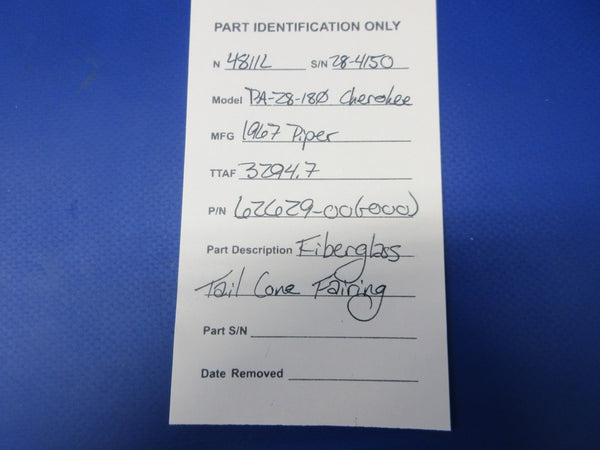 PART IDENTIFICATION ONLY
N 4811L S/N 28-4150
Model PA-28-180 Cherokee
MFG 1967 Piper
TTAF 3294.7
P/N 62629-00(000)
Part Description Fiberglass
Tail Cone Fairing
Part S/N
Date Removed